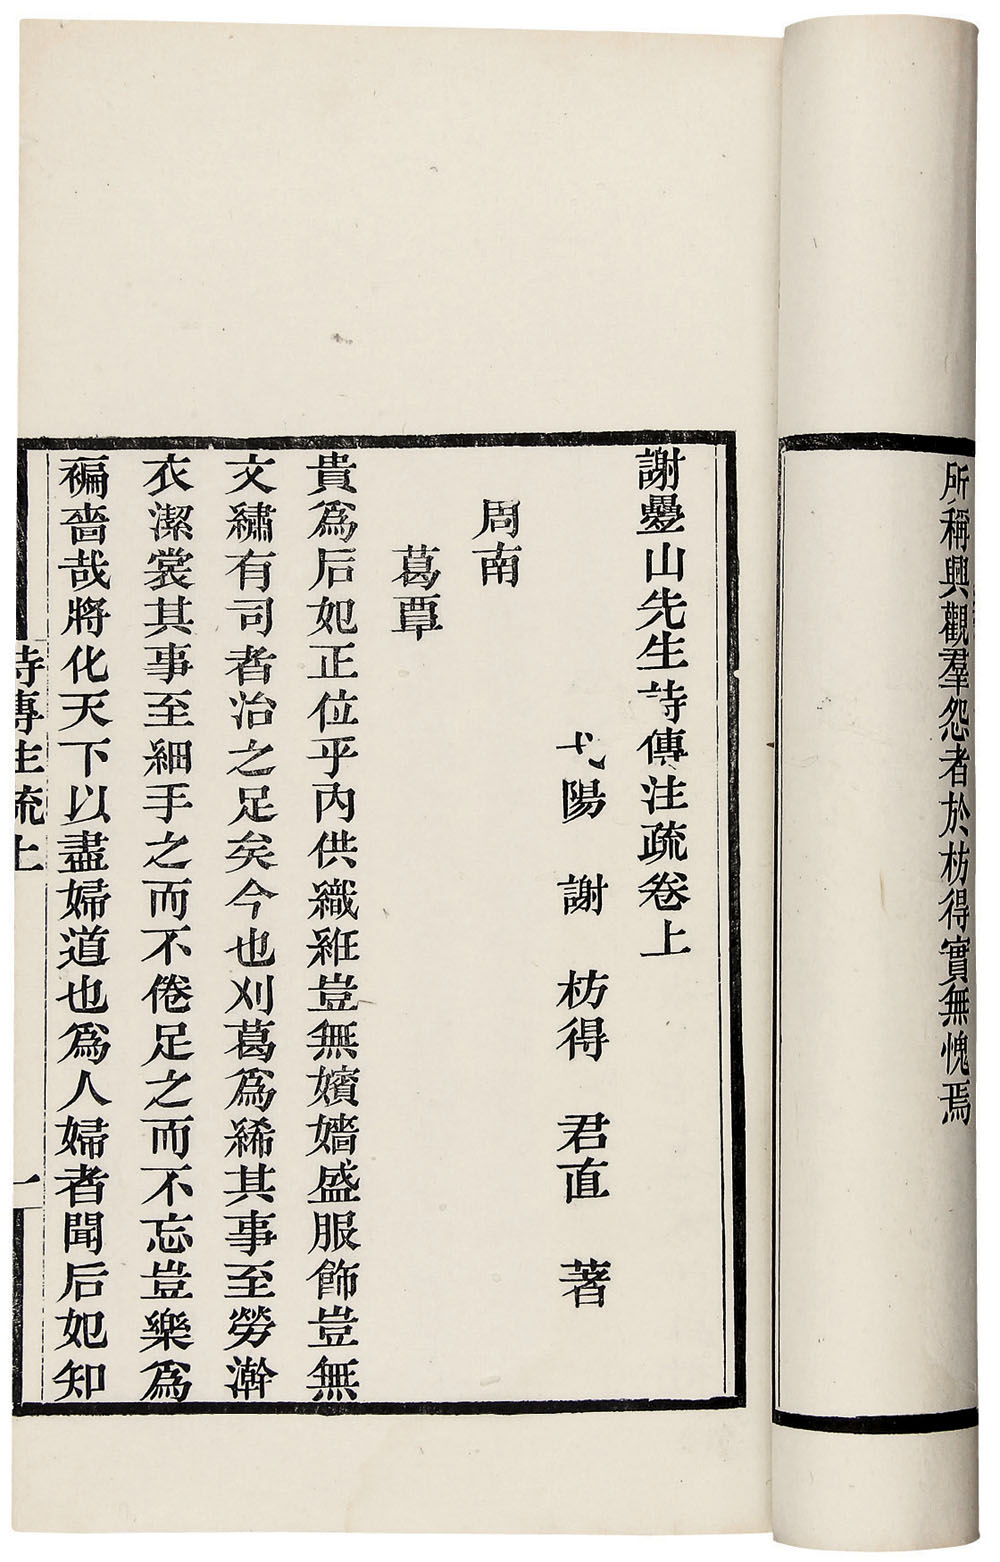 所稱興觀羣怨者於枋得實無愧焉
謝疊山先生詩傳注疏卷上
弋陽 謝 枋得 君直 著
周南
葛覃
貴爲后妃正位乎內供織紝豈無嬪嬙盛服飾豈無
文繡有司者治之足矣今也刈葛爲絺其事至勞澣
衣潔裳其事至細手之而不倦足之而不忘豈樂爲
褊嗇哉將化天下以盡婦道也爲人婦者聞后妃知
詩傳注疏上
一